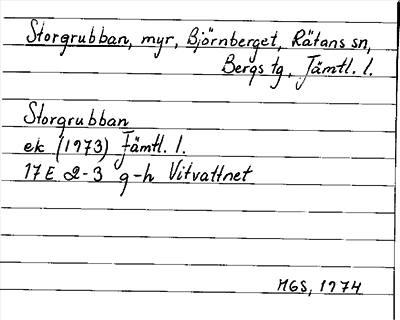 Storgrubban, myr, Björnberget, Rätans sn,
Bergs tg, Jämtl. l.
Storgrubban
ek (1973) Jämtl. l.
17E 2-3 g-h Vitvattnet
MGS, 1974